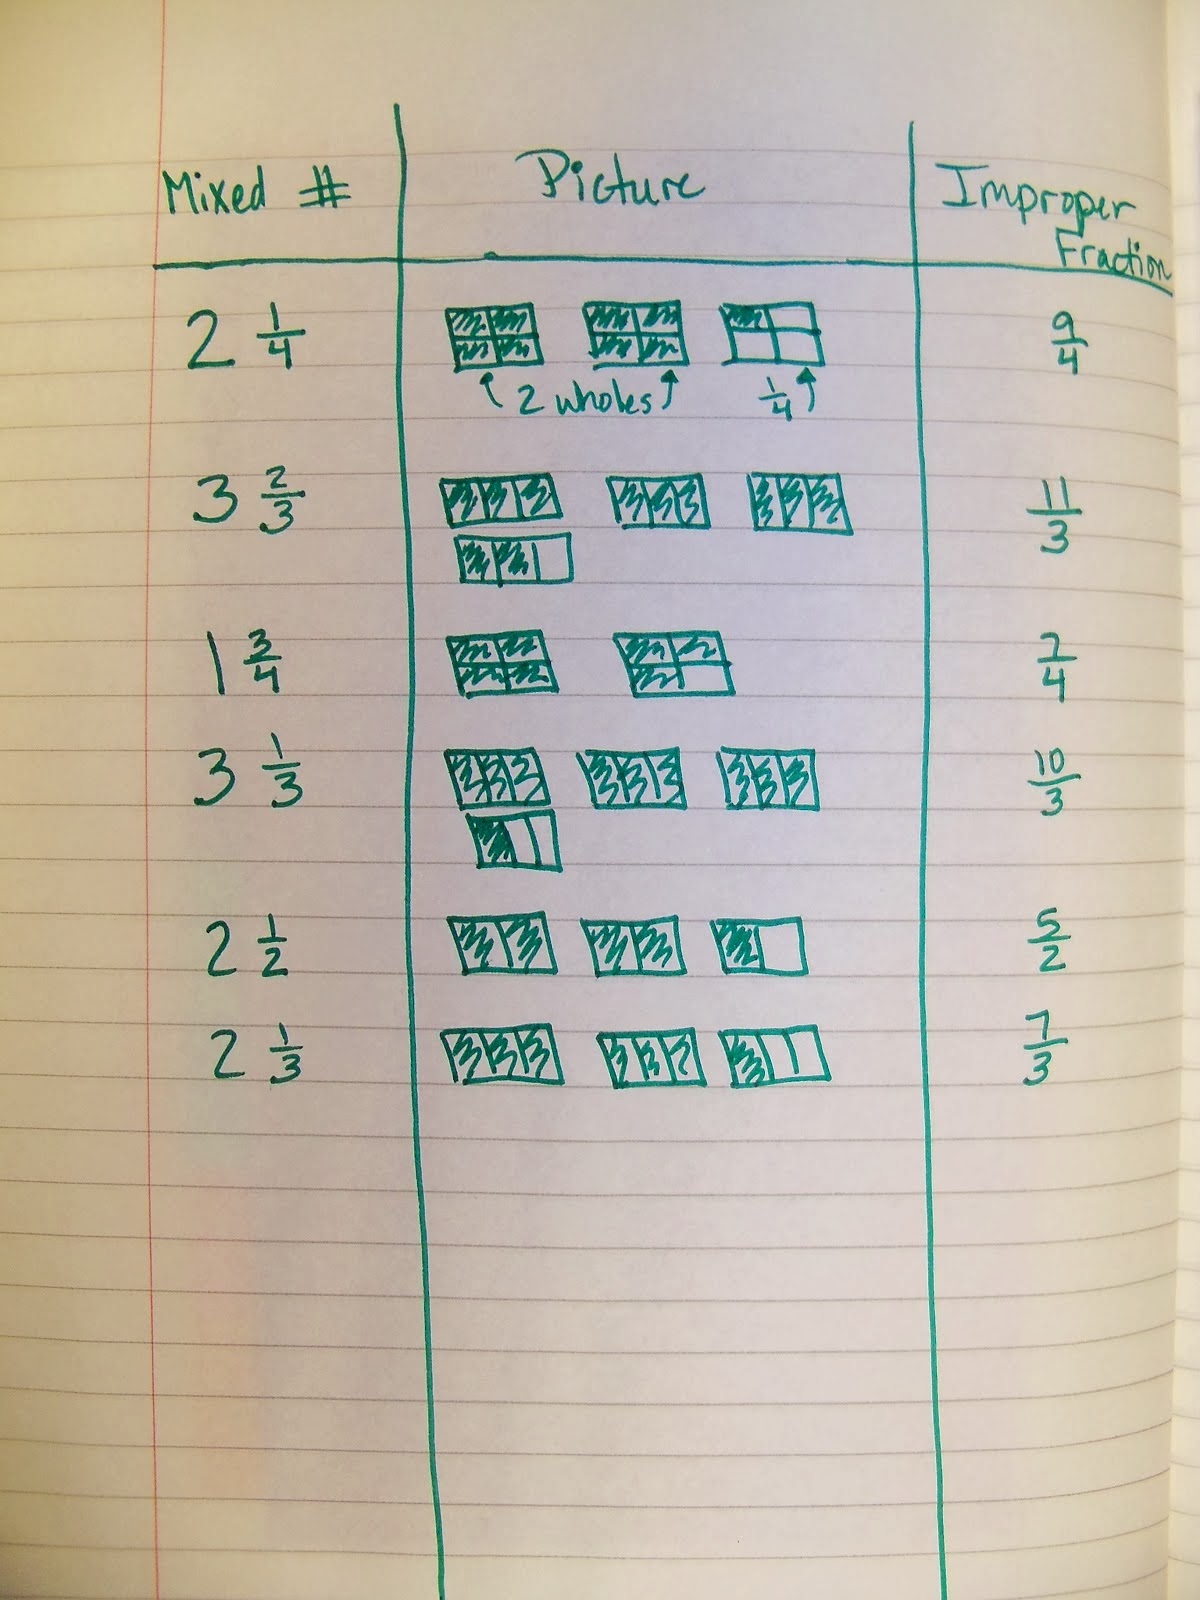 Mixed # Picture Improper Fraction
2 1/4 2 wholes 1/4 9/4
3 2/3 11/3
1 3/4 7/4
3 1/3 10/3
2 1/2 5/2
2 1/3 7/3